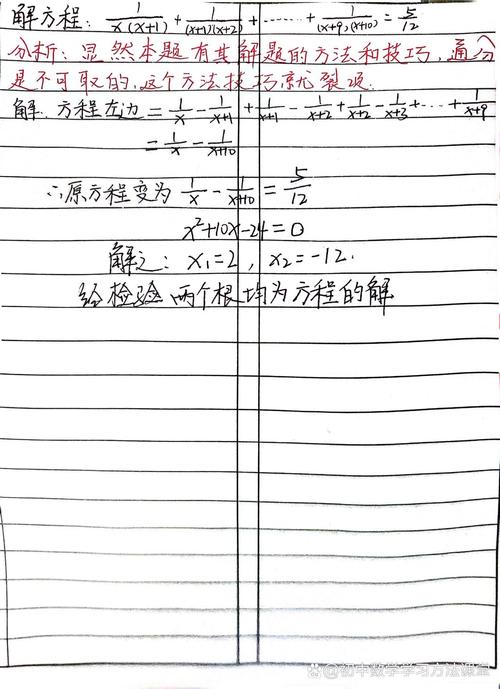 解方程: 1/x(x+1) + 1/(x+1)(x+2) + …… + 1/(x+9)(x+10) = 5/12
分析: 显然本题有其解题的方法和技巧,通分
是不可取的,这个方法技巧就裂项.
解: 方程左边 = 1/x - 1/x+1 + 1/x+1 - 1/x+2 + 1/x+2 - 1/x+3 + … + 1/x+9
= 1/x - 1/x+10
∴原方程变为 1/x - 1/x+10 = 5/12
x²+10x-24=0
解之: x₁=2, x₂=-12.
经检验两个根均为方程的解
初中数学学习方法课堂